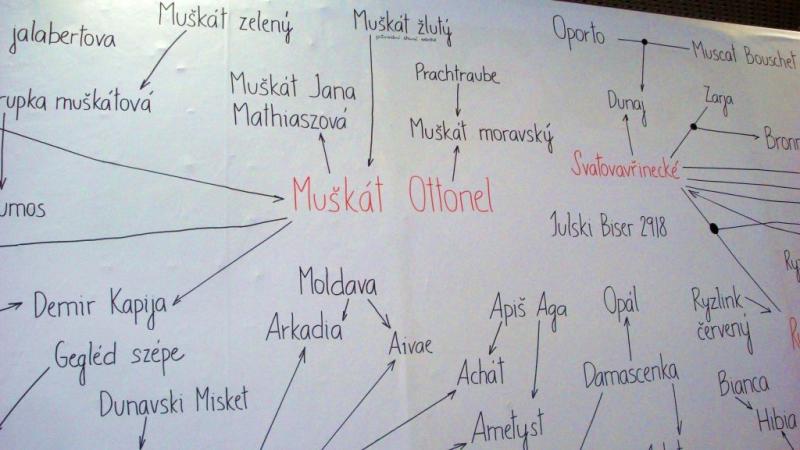 jalabertova
Muškát zelený
Muškát žlutý
Oporto
Muscat Bouschet
rupka muškátová
Muškát Jana
Mathiaszová
Prachtraube
Muškát moravský
Dunaj
Zarja
Bronn
Svatovavřinecké
umos
Muškát Ottonel
Julski Biser 2918
Ry
Demir Kapija
Moldava
Arkadia
Aivae
Apiš Aga
Opál
Ryzlink
červený
R
Gegléd szépe
Achát
Damascenka
Bianca
Dunavski Misket
Ametyst
Hibia